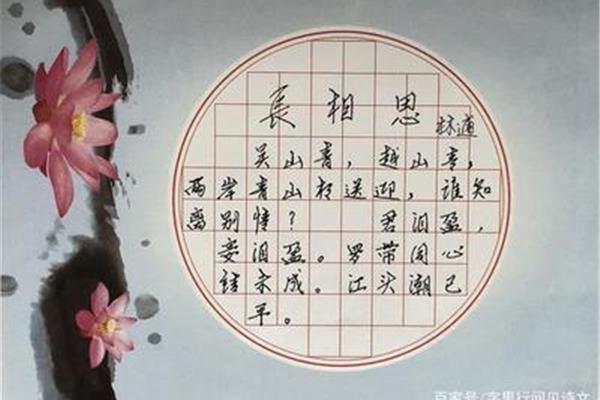 長相思
林逋
吴山青，越山青，
两岸青山相送迎，谁知
离别情？君泪盈，
妾泪盈。罗带同心
结未成。江头潮已
平。
百家号/字里行间见诗文